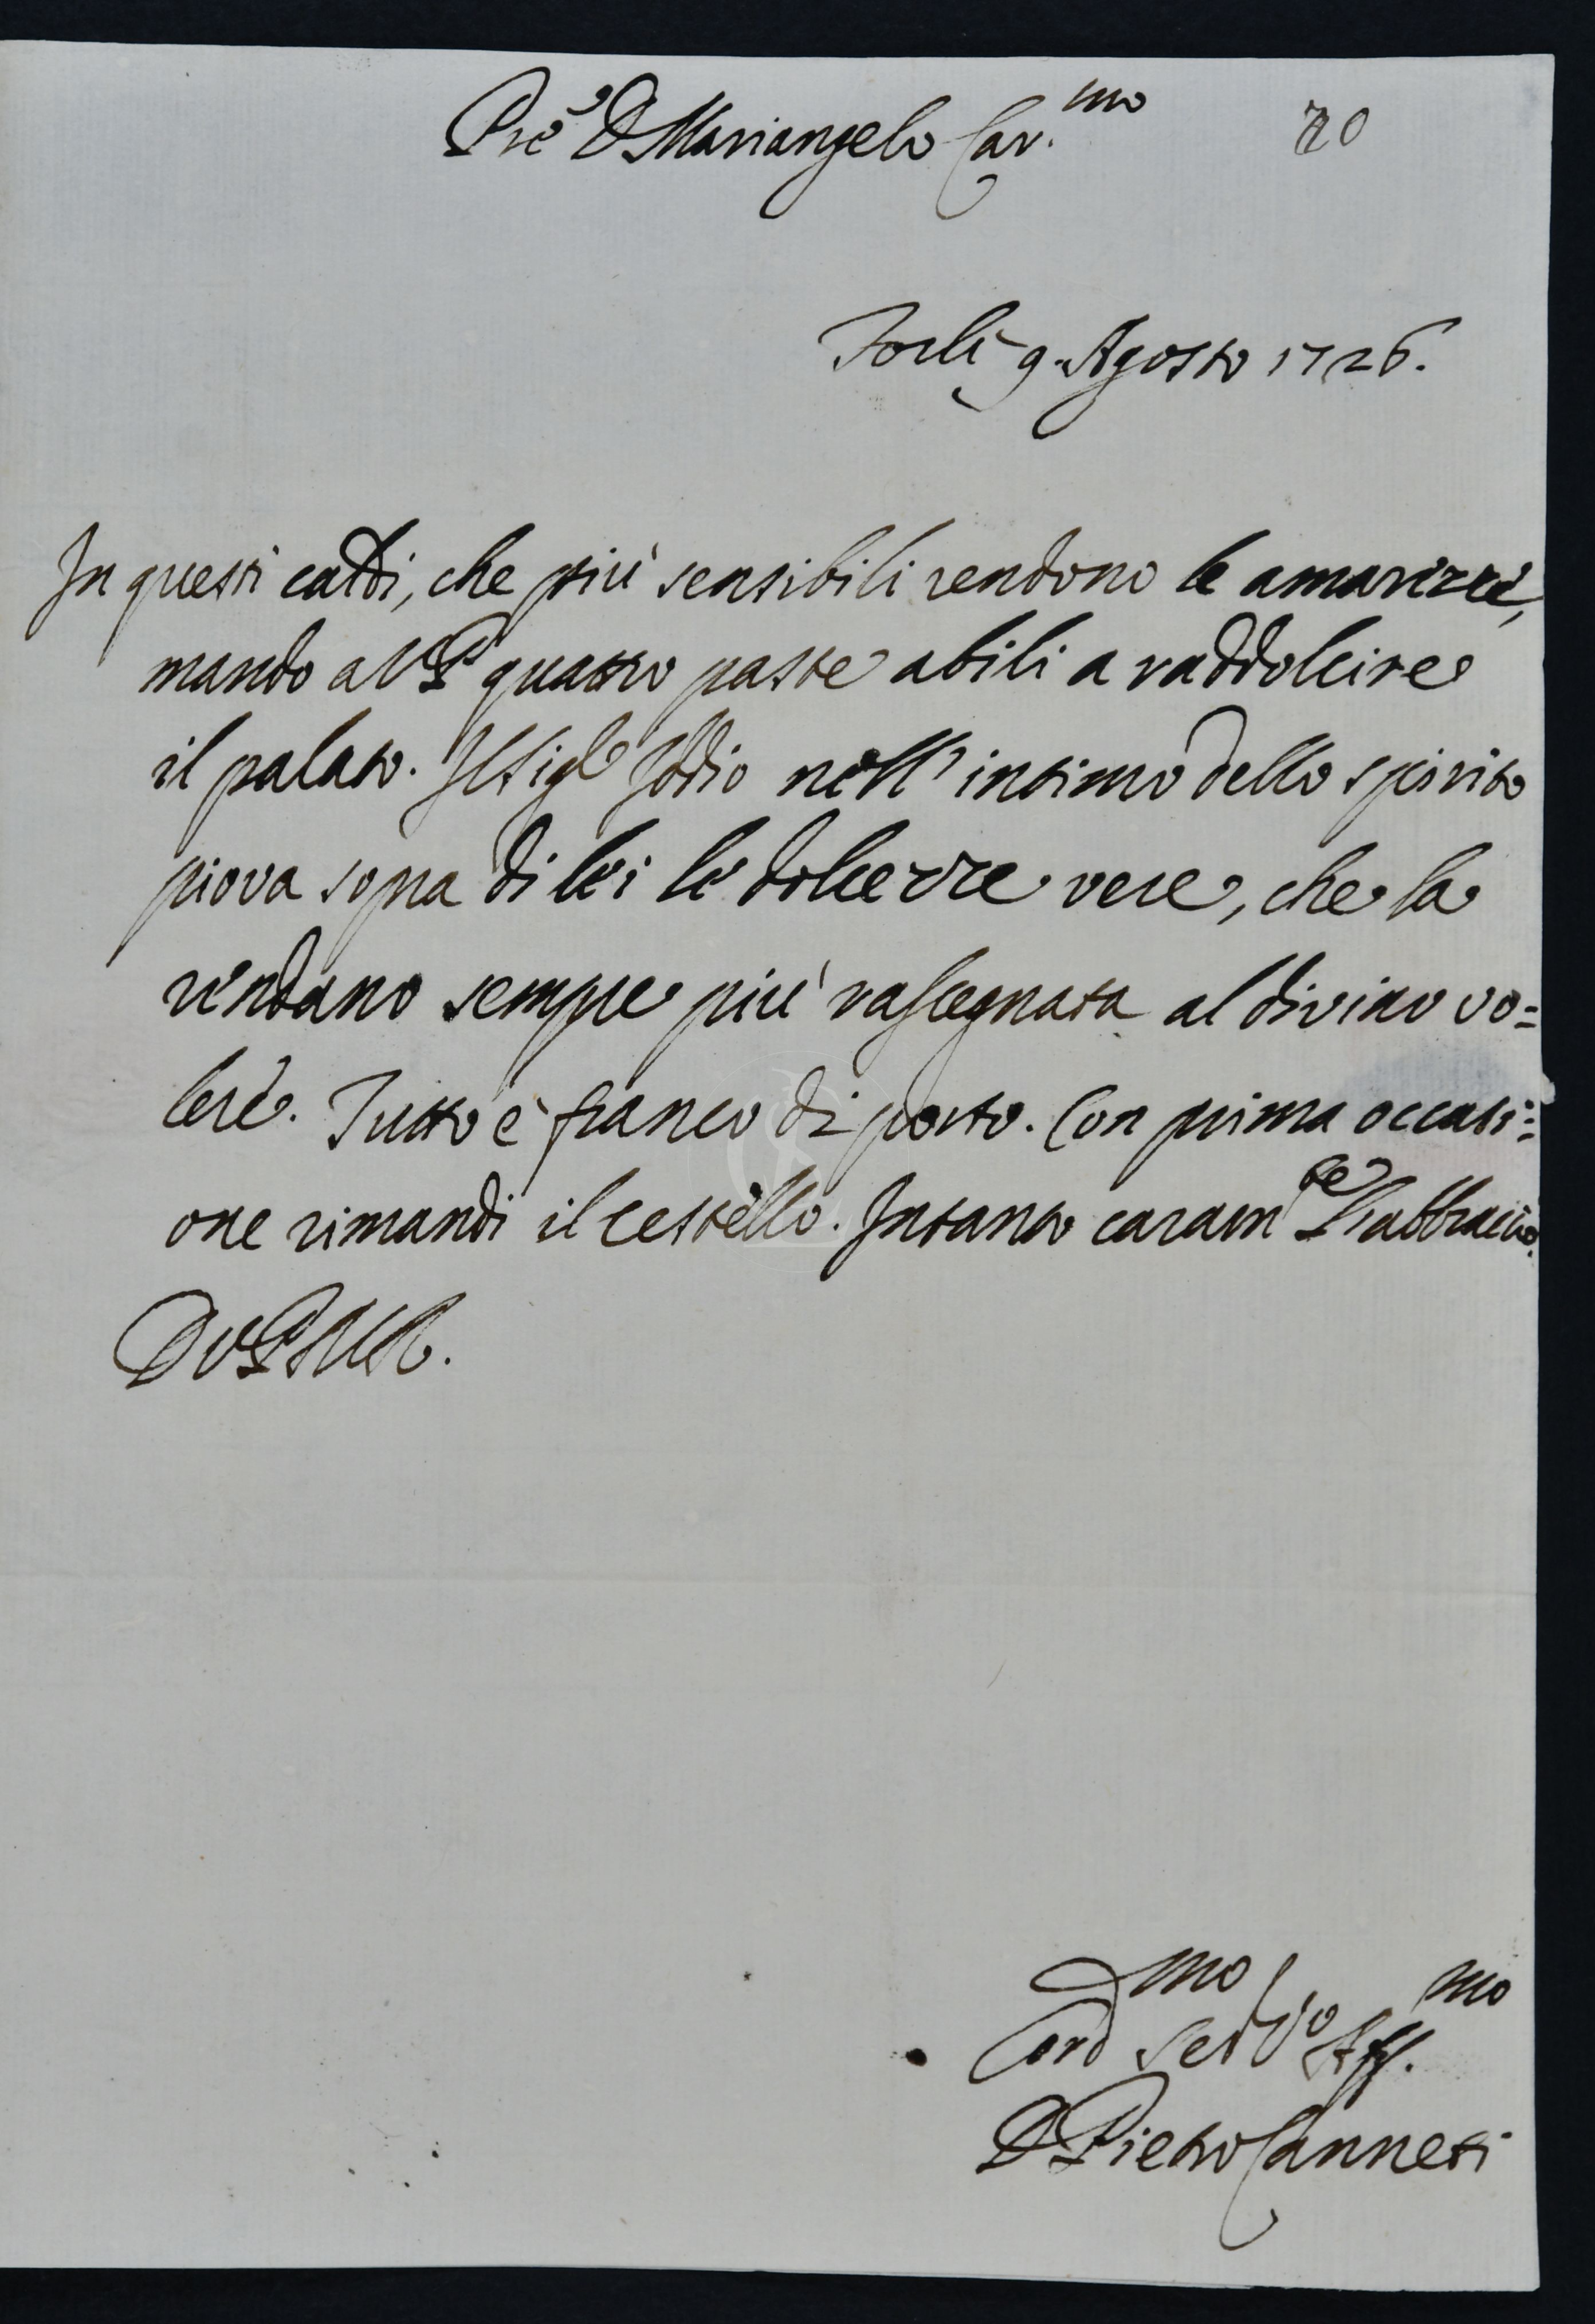 Pre D Mariangelo Car.mo 70
Forlì 9. Agosto 1726.
In questi caldi, che più sensibili rendono le amarezze,
mando a VP quattro paste abili a raddolcire
il palato. Il Sig.e Iddio nell'intimo dello spirito
piova sopra di lei le dolcezze vere, che la
rendano sempre più rassegnata al divino vo=
lere. Tutto è franco di porto. Con prima occasi=
one rimandi il cestello. Intanto caram.te L'abbraccio.
DVPMR.
Cord.mo Ser.vo Aff.mo
D Pietro Canneti